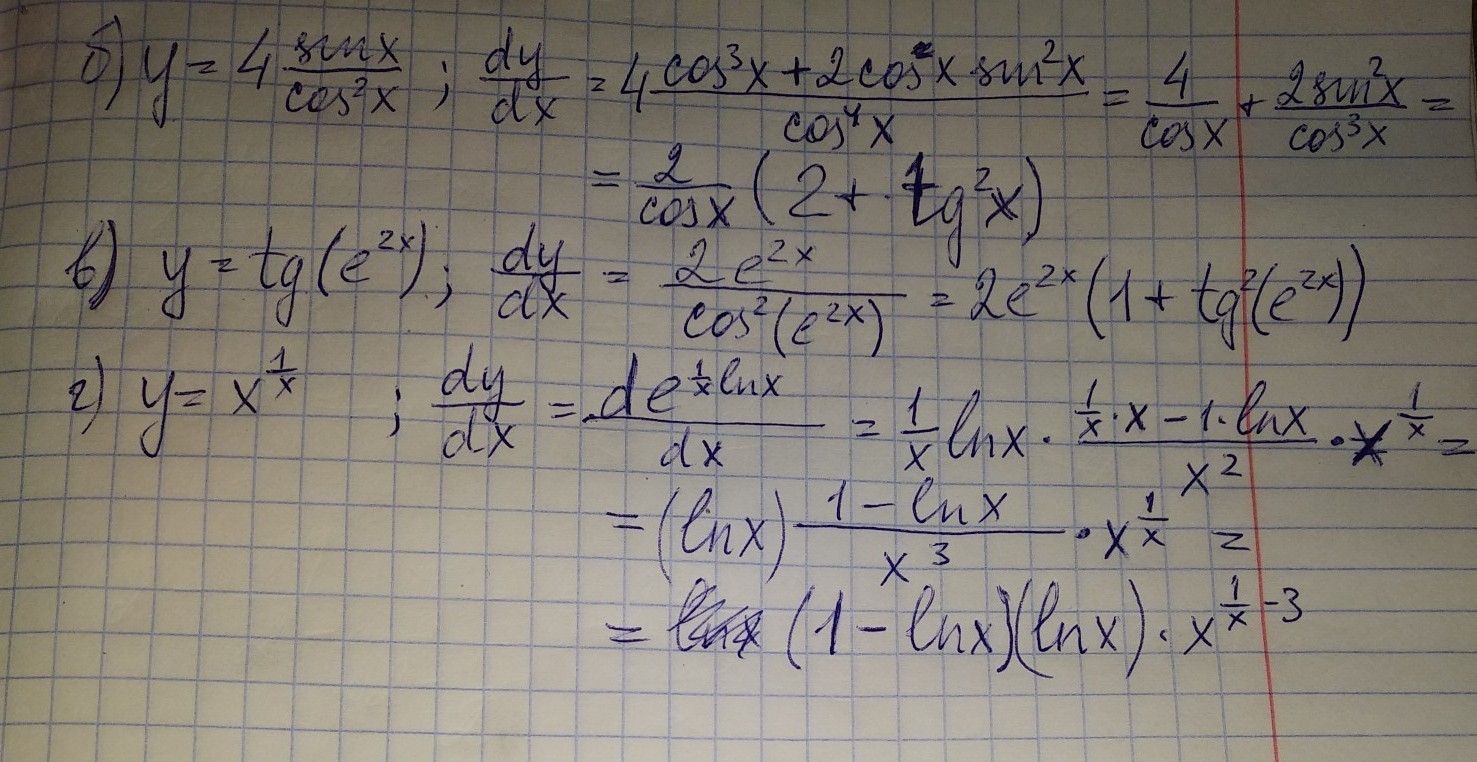 б) y = 4 sinx/cos²x ; dy/dx = 4 (cos³x + 2cosx sin²x)/cos⁴x = 4/cosx + 2sin²x/cos³x =
= 2/cosx (2 + tg²x)
в) y = tg(e^{2x}); dy/dx = 2e^{2x}/cos²(e^{2x}) = 2e^{2x}(1 + tg²(e^{2x}))
г) y = x^{1/x} ; dy/dx = de^{1/x lnx}/dx = 1/x lnx · (1/x · x − 1 · lnx)/x² · x^{1/x} =
= (lnx) (1 − lnx)/x³ · x^{1/x} =
= (1 − lnx)(lnx) · x^{1/x − 3}